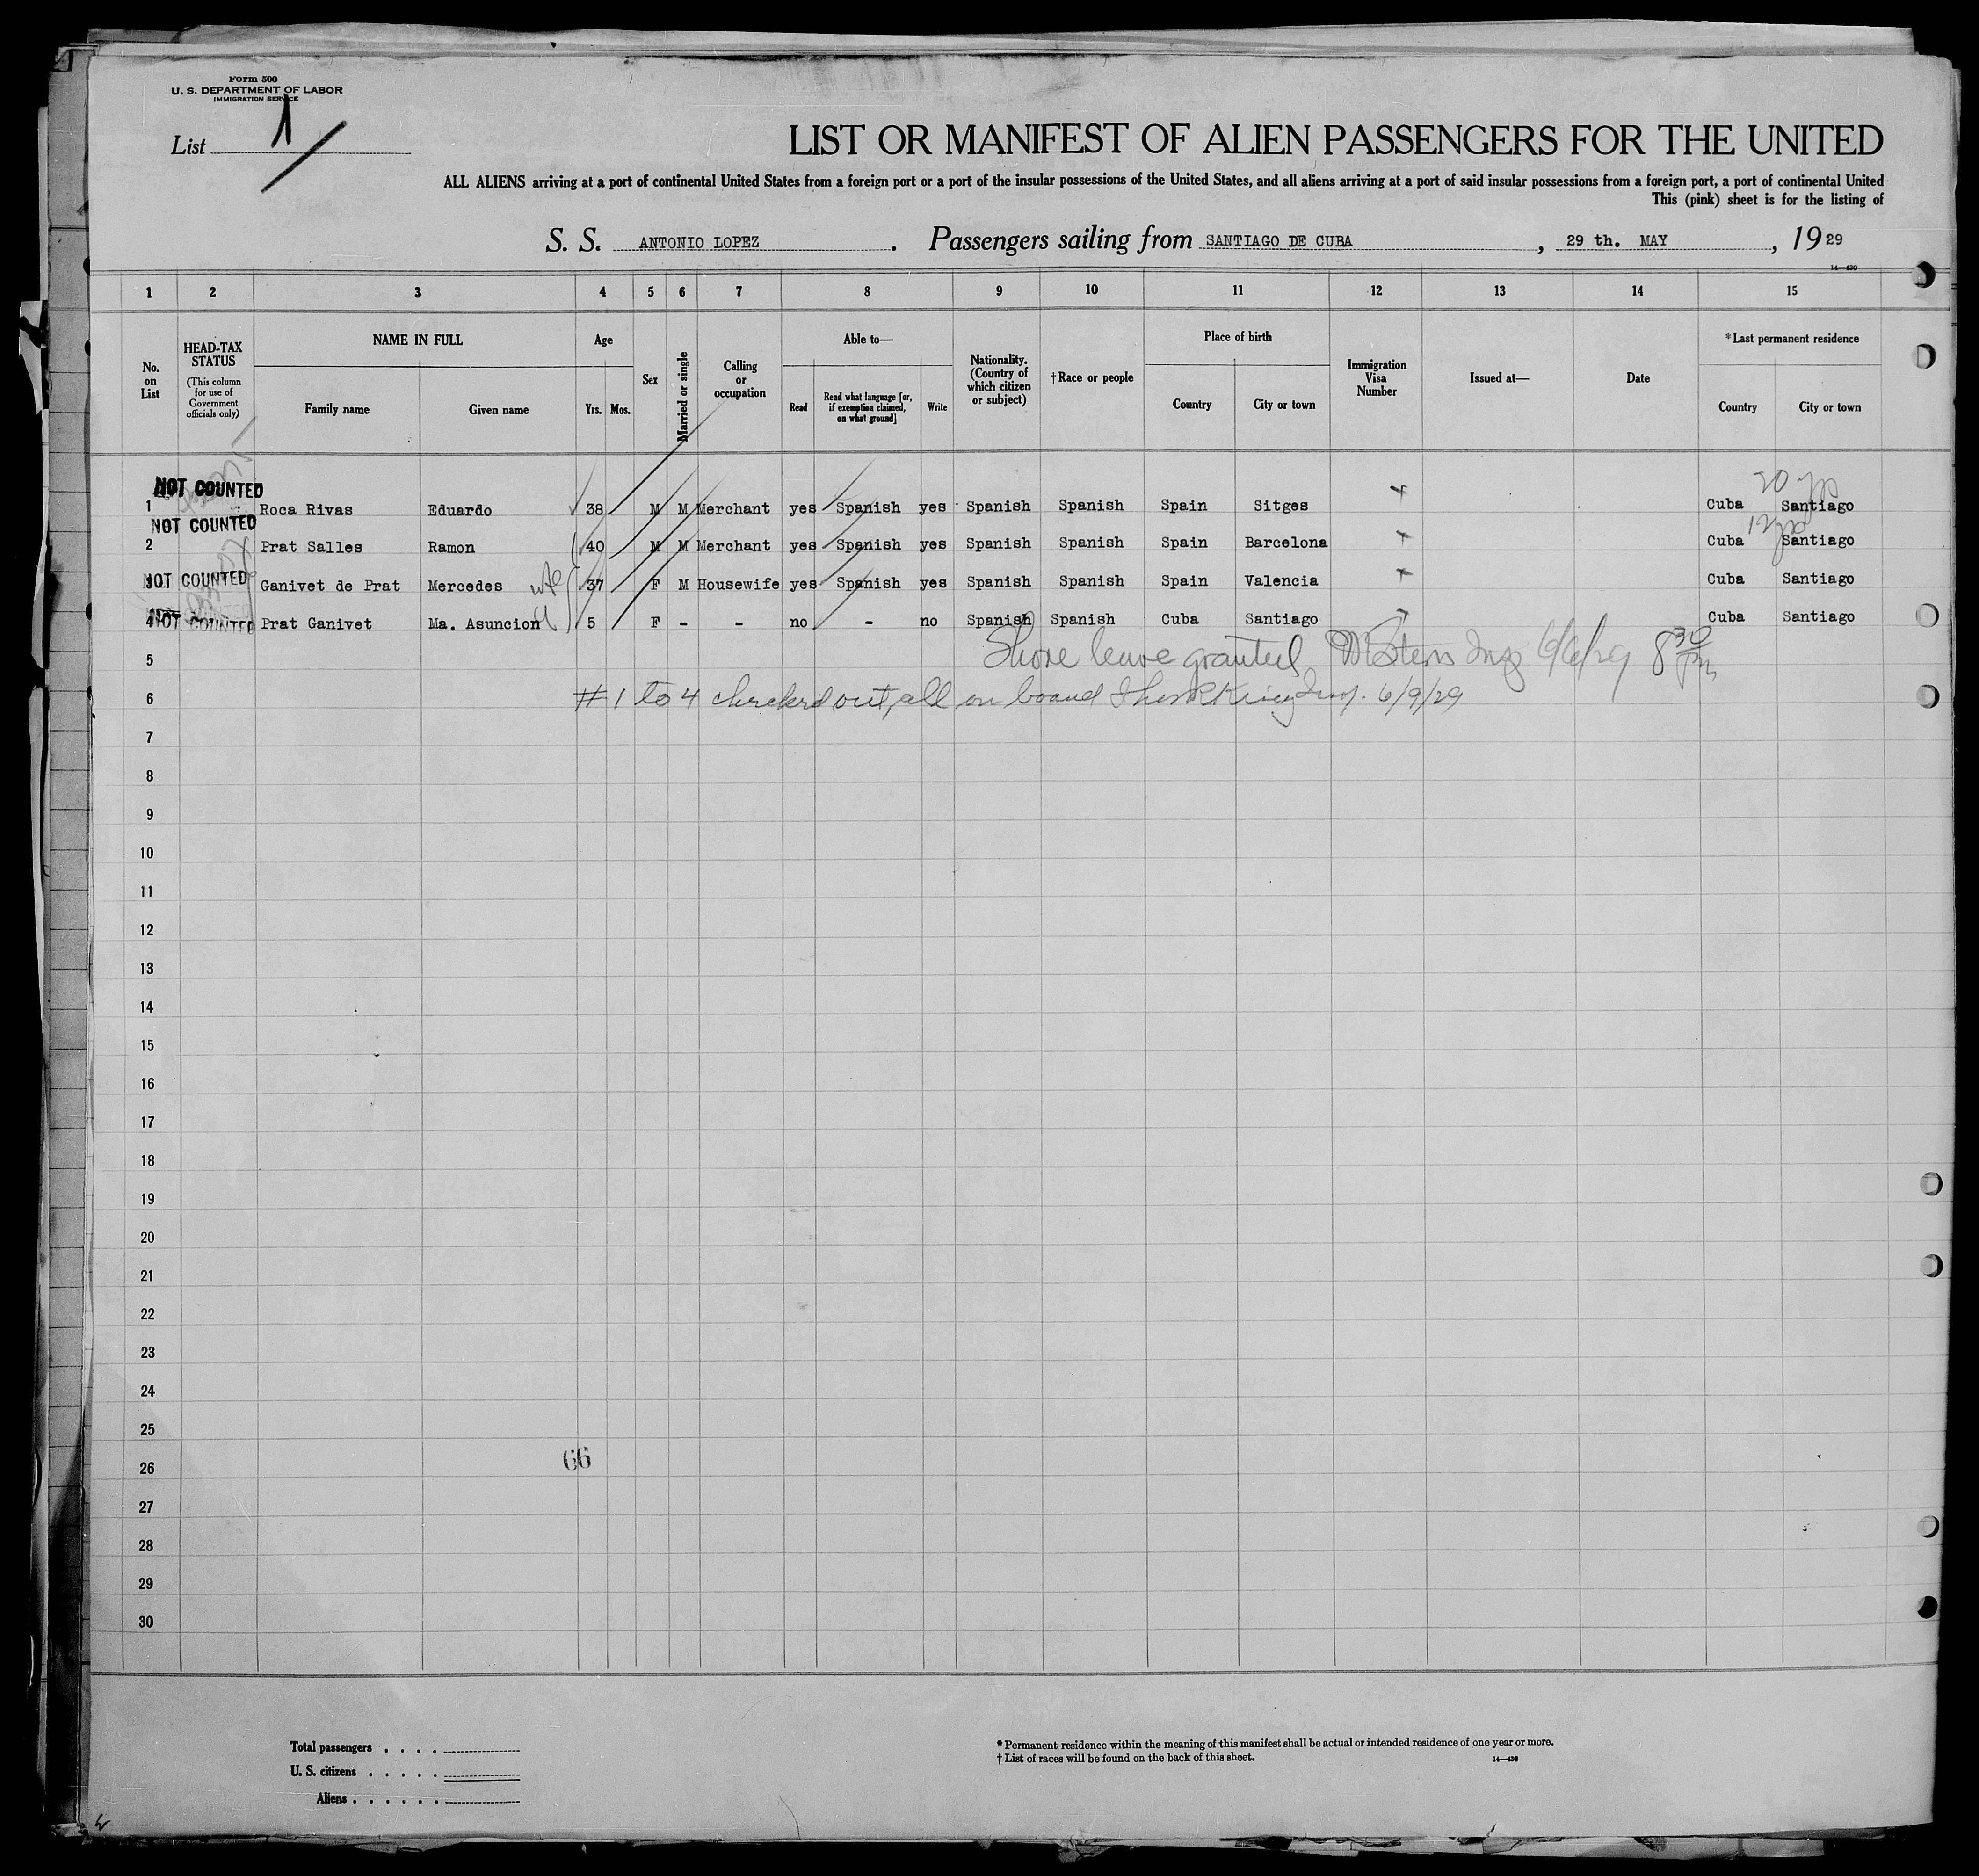 Form 500
U. S. DEPARTMENT OF LABOR
IMMIGRATION SERVICE
List 1
LIST OR MANIFEST OF ALIEN PASSENGERS FOR THE UNITED
ALL ALIENS arriving at a port of continental United States from a foreign port or a port of the insular possessions of the United States, and all aliens arriving at a port of said insular possessions from a foreign port, a port of continental United
This (pink) sheet is for the listing of
S. S. ANTONIO LOPEZ . Passengers sailing from SANTIAGO DE CUBA , 29 th. MAY , 1929
14—430
1 2 3 4 5 6 7 8 9 10 11 12 13 14 15
No. on List
HEAD-TAX STATUS (This column for use of Government officials only)
NAME IN FULL
Family name Given name
Age
Yrs. Mos.
Sex
Married or single
Calling or occupation
Able to—
Read Read what language [or, if exemption claimed, on what ground] Write
Nationality. (Country of which citizen or subject)
†Race or people
Place of birth
Country City or town
Immigration Visa Number
Issued at—
Date
*Last permanent residence
Country City or town
NOT COUNTED
20 yrs
1 Roca Rivas Eduardo 38 M M Merchant yes Spanish yes Spanish Spanish Spain Sitges Cuba Santiago
NOT COUNTED
12 yrs
2 Prat Salles Ramon 40 M M Merchant yes Spanish yes Spanish Spanish Spain Barcelona Cuba Santiago
NOT COUNTED
3 Ganivet de Prat Mercedes wife 37 F M Housewife yes Spanish yes Spanish Spanish Spain Valencia Cuba Santiago
NOT COUNTED
4 Prat Ganivet Ma. Asuncion 5 F - - no - no Spanish Spanish Cuba Santiago Cuba Santiago
5 Shore leave granted, Stern Insp 6/6/29 8 30 pm
6 #1 to 4 checked out, all on board Insp. 6/9/29
7
8
9
10
11
12
13
14
15
16
17
18
19
20
21
22
23
24
25
66
26
27
28
29
30
Total passengers . . . .
U. S. citizens . . . . .
Aliens . . . . . .
* Permanent residence within the meaning of this manifest shall be actual or intended residence of one year or more.
† List of races will be found on the back of this sheet. 14—430